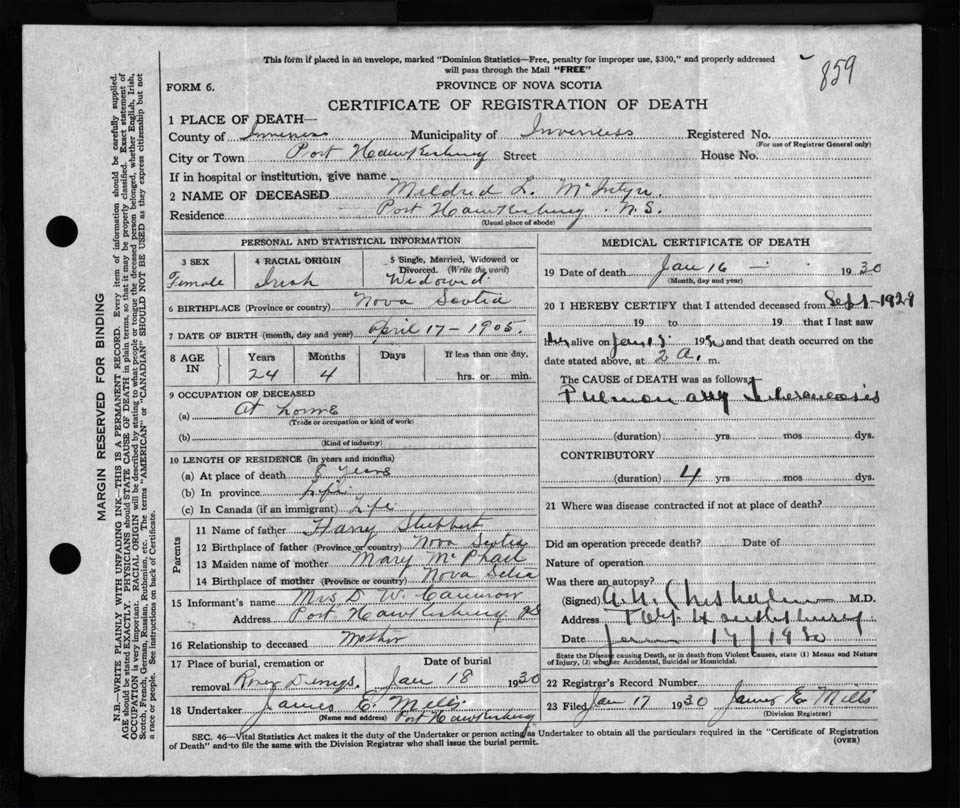 This form if placed in an envelope, marked "Dominion Statistics—Free, penalty for improper use, $300," and properly addressed
will pass through the Mail "FREE"
859
FORM 6.
PROVINCE OF NOVA SCOTIA
CERTIFICATE OF REGISTRATION OF DEATH
1 PLACE OF DEATH—
County of Inverness Municipality of Inverness Registered No.
(For use of Registrar General only)
City or Town Port Hawkesbury Street House No.
If in hospital or institution, give name
2 NAME OF DECEASED Mildred L. McIntyre
Residence Port Hawkesbury N.S.
(Usual place of abode)
PERSONAL AND STATISTICAL INFORMATION
3 SEX
Female
4 RACIAL ORIGIN
Irish
5 Single, Married, Widowed or
Divorced. (Write the word)
Widowed
6 BIRTHPLACE (Province or country) Nova Scotia
7 DATE OF BIRTH (month, day and year) April 17-1905.
8 AGE IN
Years Months Days If less than one day,
24 4 hrs. or min.
9 OCCUPATION OF DECEASED
(a) At home
(Trade or occupation or kind of work)
(b)
(Kind of industry)
10 LENGTH OF RESIDENCE (in years and months)
(a) At place of death 8 years
(b) In province Life
(c) In Canada (if an immigrant) Life
Parents
11 Name of father Harry Stubbert
12 Birthplace of father (Province or country) Nova Scotia
13 Maiden name of mother Mary McPhail
14 Birthplace of mother (Province or country) Nova Scotia
15 Informant's name Mrs D. W. Cameron
Address Port Hawkesbury NS
16 Relationship to deceased Mother
17 Place of burial, cremation or Date of burial
removal River Denys. Jan 18 1930
18 Undertaker James E. Mills
(Name and address) Port Hawkesbury
MEDICAL CERTIFICATE OF DEATH
19 Date of death Jan 16 1930
(Month, day and year)
20 I HEREBY CERTIFY that I attended deceased from Sept-1928
19 to 19 that I last saw
her alive on Jan 1930 and that death occurred on the
date stated above, at 2 A. m.
The CAUSE of DEATH was as follows
Pulmonary Tuberculosis
(duration) yrs mos dys.
CONTRIBUTORY
(duration) 4 yrs mos dys.
21 Where was disease contracted if not at place of death?
Did an operation precede death? Date of
Nature of operation
Was there an autopsy?
(Signed) M.D.
Address Port Hawkesbury
Date Jan 17/1930
State the Disease causing Death, or in death from Violent Causes, state (1) Means and Nature
of Injury, (2) whether Accidental, Suicidal or Homicidal.
22 Registrar's Record Number
23 Filed Jan 17 1930 James E. Mills
(Division Registrar)
SEC. 46—Vital Statistics Act makes it the duty of the Undertaker or person acting as Undertaker to obtain all the particulars required in the "Certificate of Registration
of Death" and to file the same with the Division Registrar who shall issue the burial permit. (OVER)
MARGIN RESERVED FOR BINDING
N.B.—WRITE PLAINLY WITH UNFADING INK—THIS IS A PERMANENT RECORD. Every item of information should be carefully supplied.
AGE should be stated EXACTLY. PHYSICIANS should STATE CAUSE OF DEATH in plain terms, so that it may be properly classified. Exact statement of
OCCUPATION is very important. RACIAL ORIGIN will be described by stating to what people or tongue the deceased person belonged, whether English, Irish,
Scotch, French, German, Russian, Ruthenian, etc. The terms "AMERICAN" or "CANADIAN" SHOULD NOT BE USED as they express citizenship but not
a race or people. See instructions on back of Certificate.